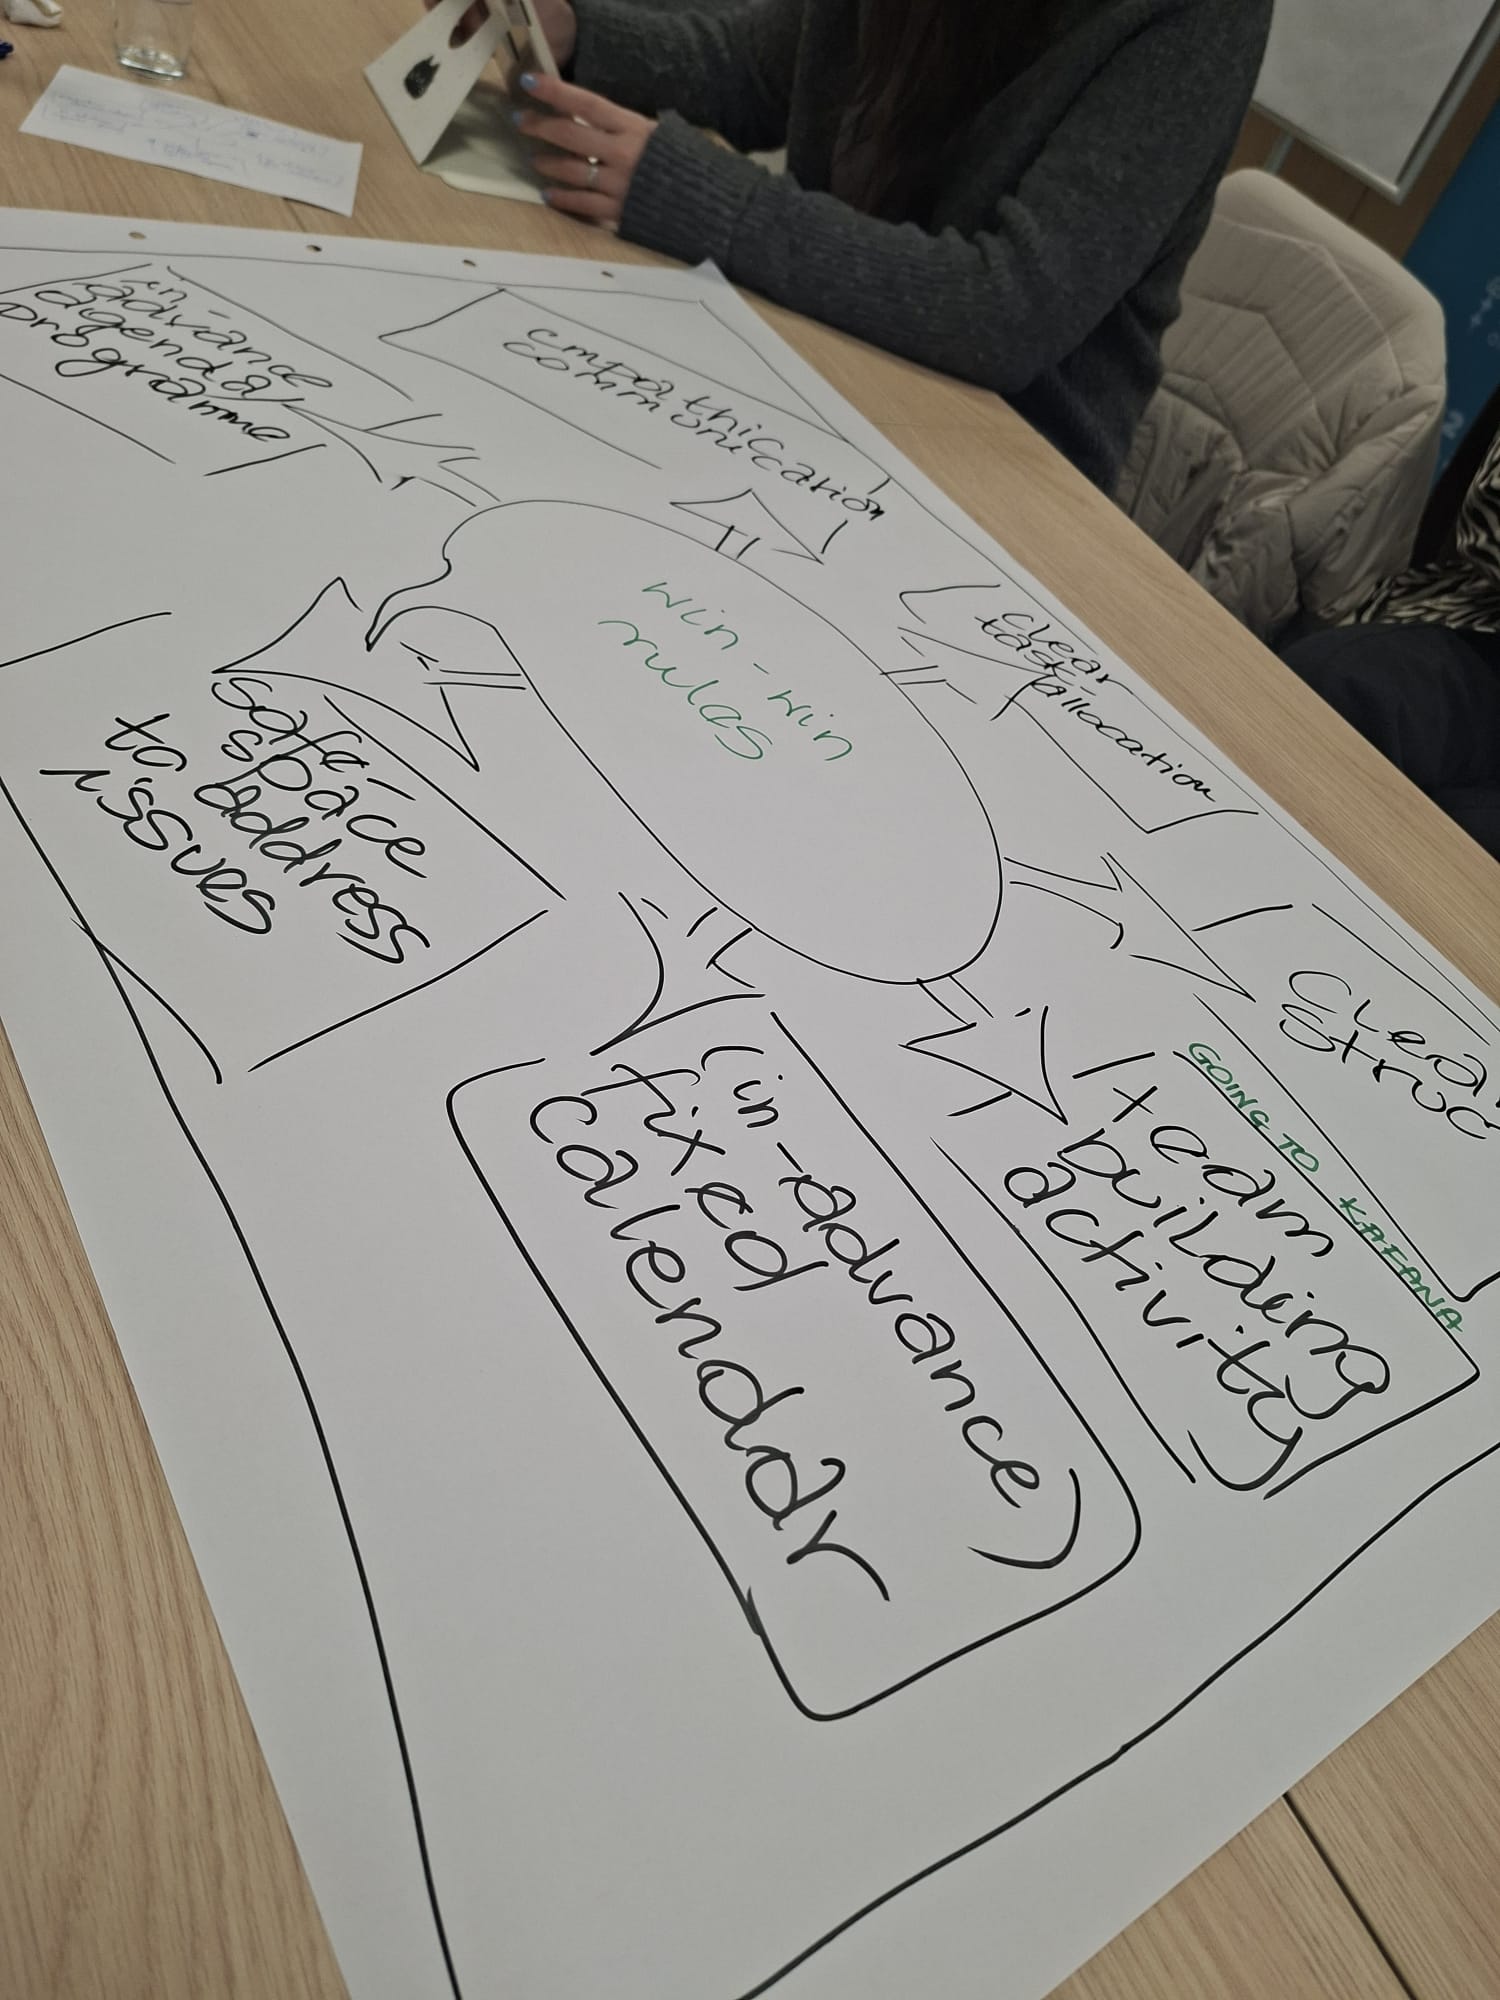 in-
advance
agenda/
programme
empathic
communication
clear
task
allocation
win-win
rules
safe-
space
to address
issues
clear
struc
GOING TO KAFANA
team
building
activity
(in-advance)
fixed
calendar